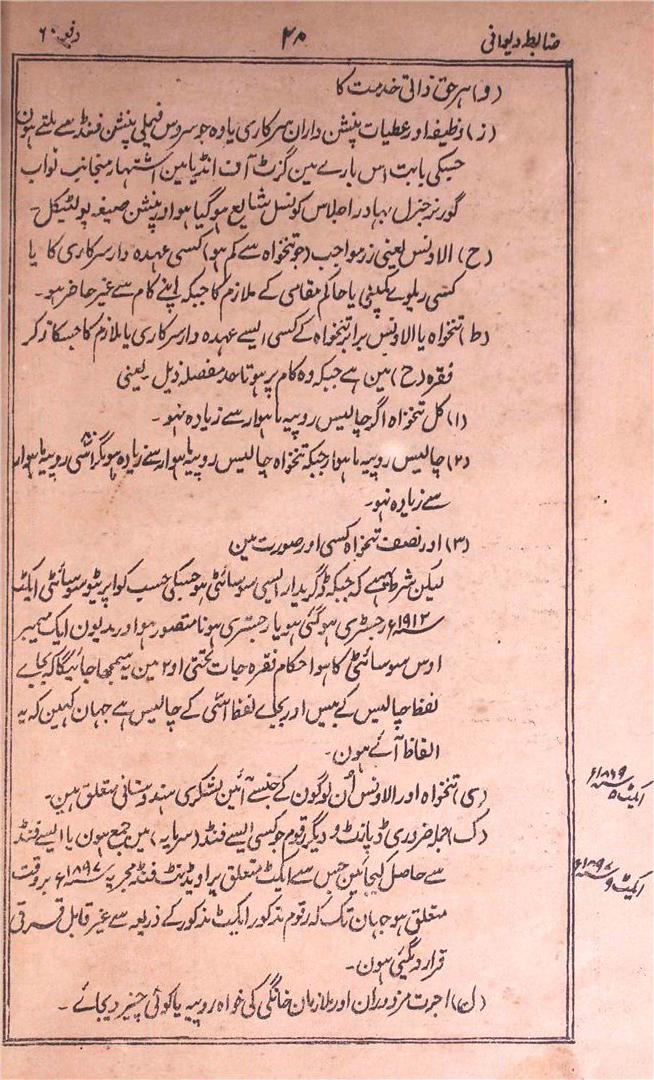 ضابطہ دیوانی ۲۸ دفعہ ۶۰
(و) ہر حق ذاتی خدمت کا
(ز) وظیفہ اور عطیات پنشن داران سرکاری یا وہ جو سروس فیملی پنشن فنڈ سے ملتے ہون
جسکی بابت اس بارے مین گزٹ آف انڈیا مین اشتہار منجانب نواب
گورنر جنرل بہادر اجلاس کونسل شایع ہو گیا ہو اور پنشن صیغہ پولٹیکل۔
(ح) الاونس یعنی زر مواجب (جو تنخواہ سے کم ہو) کسی عہدہ دار سرکاری کا یا
کسی ریلوے کمپنی یا حاکم مقامی کے ملازم کا جبکہ اپنے کام سے غیر حاضر ہو۔
(ط) تنخواہ یا الاونس برابر تنخواہ کے کسی ایسے عہدہ دار سرکاری یا ملازم کا جسکا ذکر
فقرہ (ح) مین ہے جبکہ وہ کام پر ہو تا حد مفصلہ ذیل۔ یعنی
(۱) کل تنخواہ اگر چالیس روپیہ ماہوار سے زیادہ نہو۔
(۲) چالیس روپیہ ماہوار جبکہ تنخواہ چالیس روپیہ ماہوار سے زیادہ ہو مگر اسّی روپیہ ماہوار
سے زیادہ نہو۔
(۳) اور نصف تنخواہ کسی اور صورت مین
لیکن شرط یہ ہے کہ جبکہ ڈگریدار ایسی سوسائٹی ہو جسکی حسب کواپریٹو سوسائٹی ایکٹ
سنہ ۱۹۱۲ء رجسٹری ہو گئی ہو یا رجسٹری ہونا متصور ہو اور مدیون ایک ممبر
اوس سوسائٹی کا ہو احکام فقرہ جات تحتی ۱ و ۲ مین یہ سمجھا جائیگا کہ بجاے
لفظ چالیس کے بیس اور بجاے لفظ اسّی کے چالیس ہے جہان کہین کہ یہ
الفاظ آئے ہون۔
(ی) تنخواہ اور الاونس اُن لوگون کے جنسے آئین لشکری ہندوستانی متعلق ہین۔
ایکٹ ۵ سنہ ۱۸۶۹ء
(ک) جملہ ضروری ڈپازٹ و دیگر رقوم جو کسی ایسے فنڈ (سرمایہ) مین جمع ہون یا ایسے فنڈ
سے حاصل کیجائین جس سے ایکٹ متعلق پراویڈنٹ فنڈ مجریہ سنہ ۱۸۹۷ء بر وقت
ایکٹ ۹ سنہ ۱۸۹۷ء
متعلق ہو جہان تک کہ رقوم مذکور ایکٹ مذکور کے ذریعہ سے غیر قابل قرقی
قرار دیگئی ہون۔
(ل) اجرت مزدوران اور ملازمان خانگی کی خواہ روپیہ یا کوئی چیز دیجائے۔